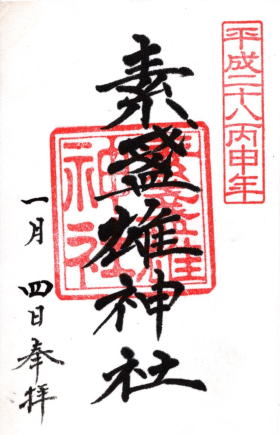 平成二十八丙申年
素盞雄神社
素盞雄神社
一月 四日奉拝